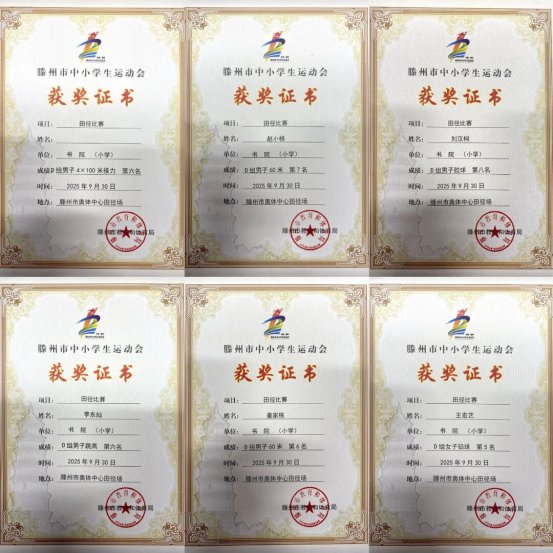 滕州市中小学生运动会
获奖证书
项目: 田径比赛
姓名:
单位: 书 院 (小学)
成绩: D组男子4×100米接力 第六名
时间: 2025年9月30日
地点: 滕州市奥体中心田径场
滕州市教育和体育局
滕州市中小学生运动会
获奖证书
项目: 田径比赛
姓名: 赵小杨
单位: 书 院 (小学)
成绩: D组男子60米 第7名
时间: 2025年9月30日
地点: 滕州市奥体中心田径场
滕州市教育和体育局
滕州市中小学生运动会
获奖证书
项目: 田径比赛
姓名: 刘汉桐
单位: 书 院 (小学)
成绩: D组男子胶球 第八名
时间: 2025年9月30日
地点: 滕州市奥体中心田径场
滕州市教育和体育局
滕州市中小学生运动会
获奖证书
项目: 田径比赛
姓名: 李东灿
单位: 书 院 (小学)
成绩: D组男子跳高 第六名
时间: 2025年9月30日
地点: 滕州市奥体中心田径场
滕州市教育和体育局
滕州市中小学生运动会
获奖证书
项目: 田径比赛
姓名: 姜家栋
单位: 书 院 (小学)
成绩: D组男子60米 第6名
时间: 2025年9月30日
地点: 滕州市奥体中心田径场
滕州市教育和体育局
滕州市中小学生运动会
获奖证书
项目: 田径比赛
姓名: 王宏艺
单位: 书 院 (小学)
成绩: D组女子铅球 第5名
时间: 2025年9月30日
地点: 滕州市奥体中心田径场
滕州市教育和体育局